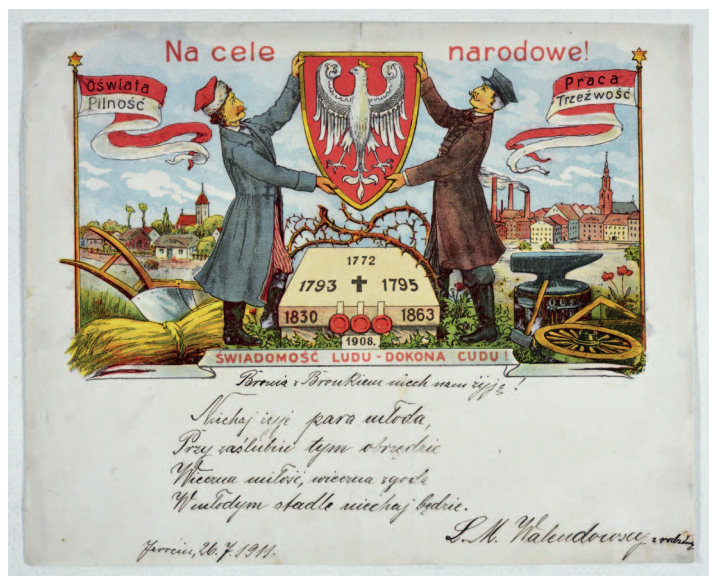 Na cele narodowe!
Oświata
Pilność
Praca
Trzeźwość
1772
1793 ✝ 1795
1830 1863
1908.
ŚWIADOMOŚĆ LUDU - DOKONA CUDU!
Bronia z Bronkiem niech nam żyją!
Niechaj żyje para młoda,
Przy zaślubin tym obrzędzie
Wieczna miłość, wieczna zgoda
W młodym stadle niechaj będzie.
L. M. Walendowscy z rodziną
Jarocin, 26. 7. 1911.